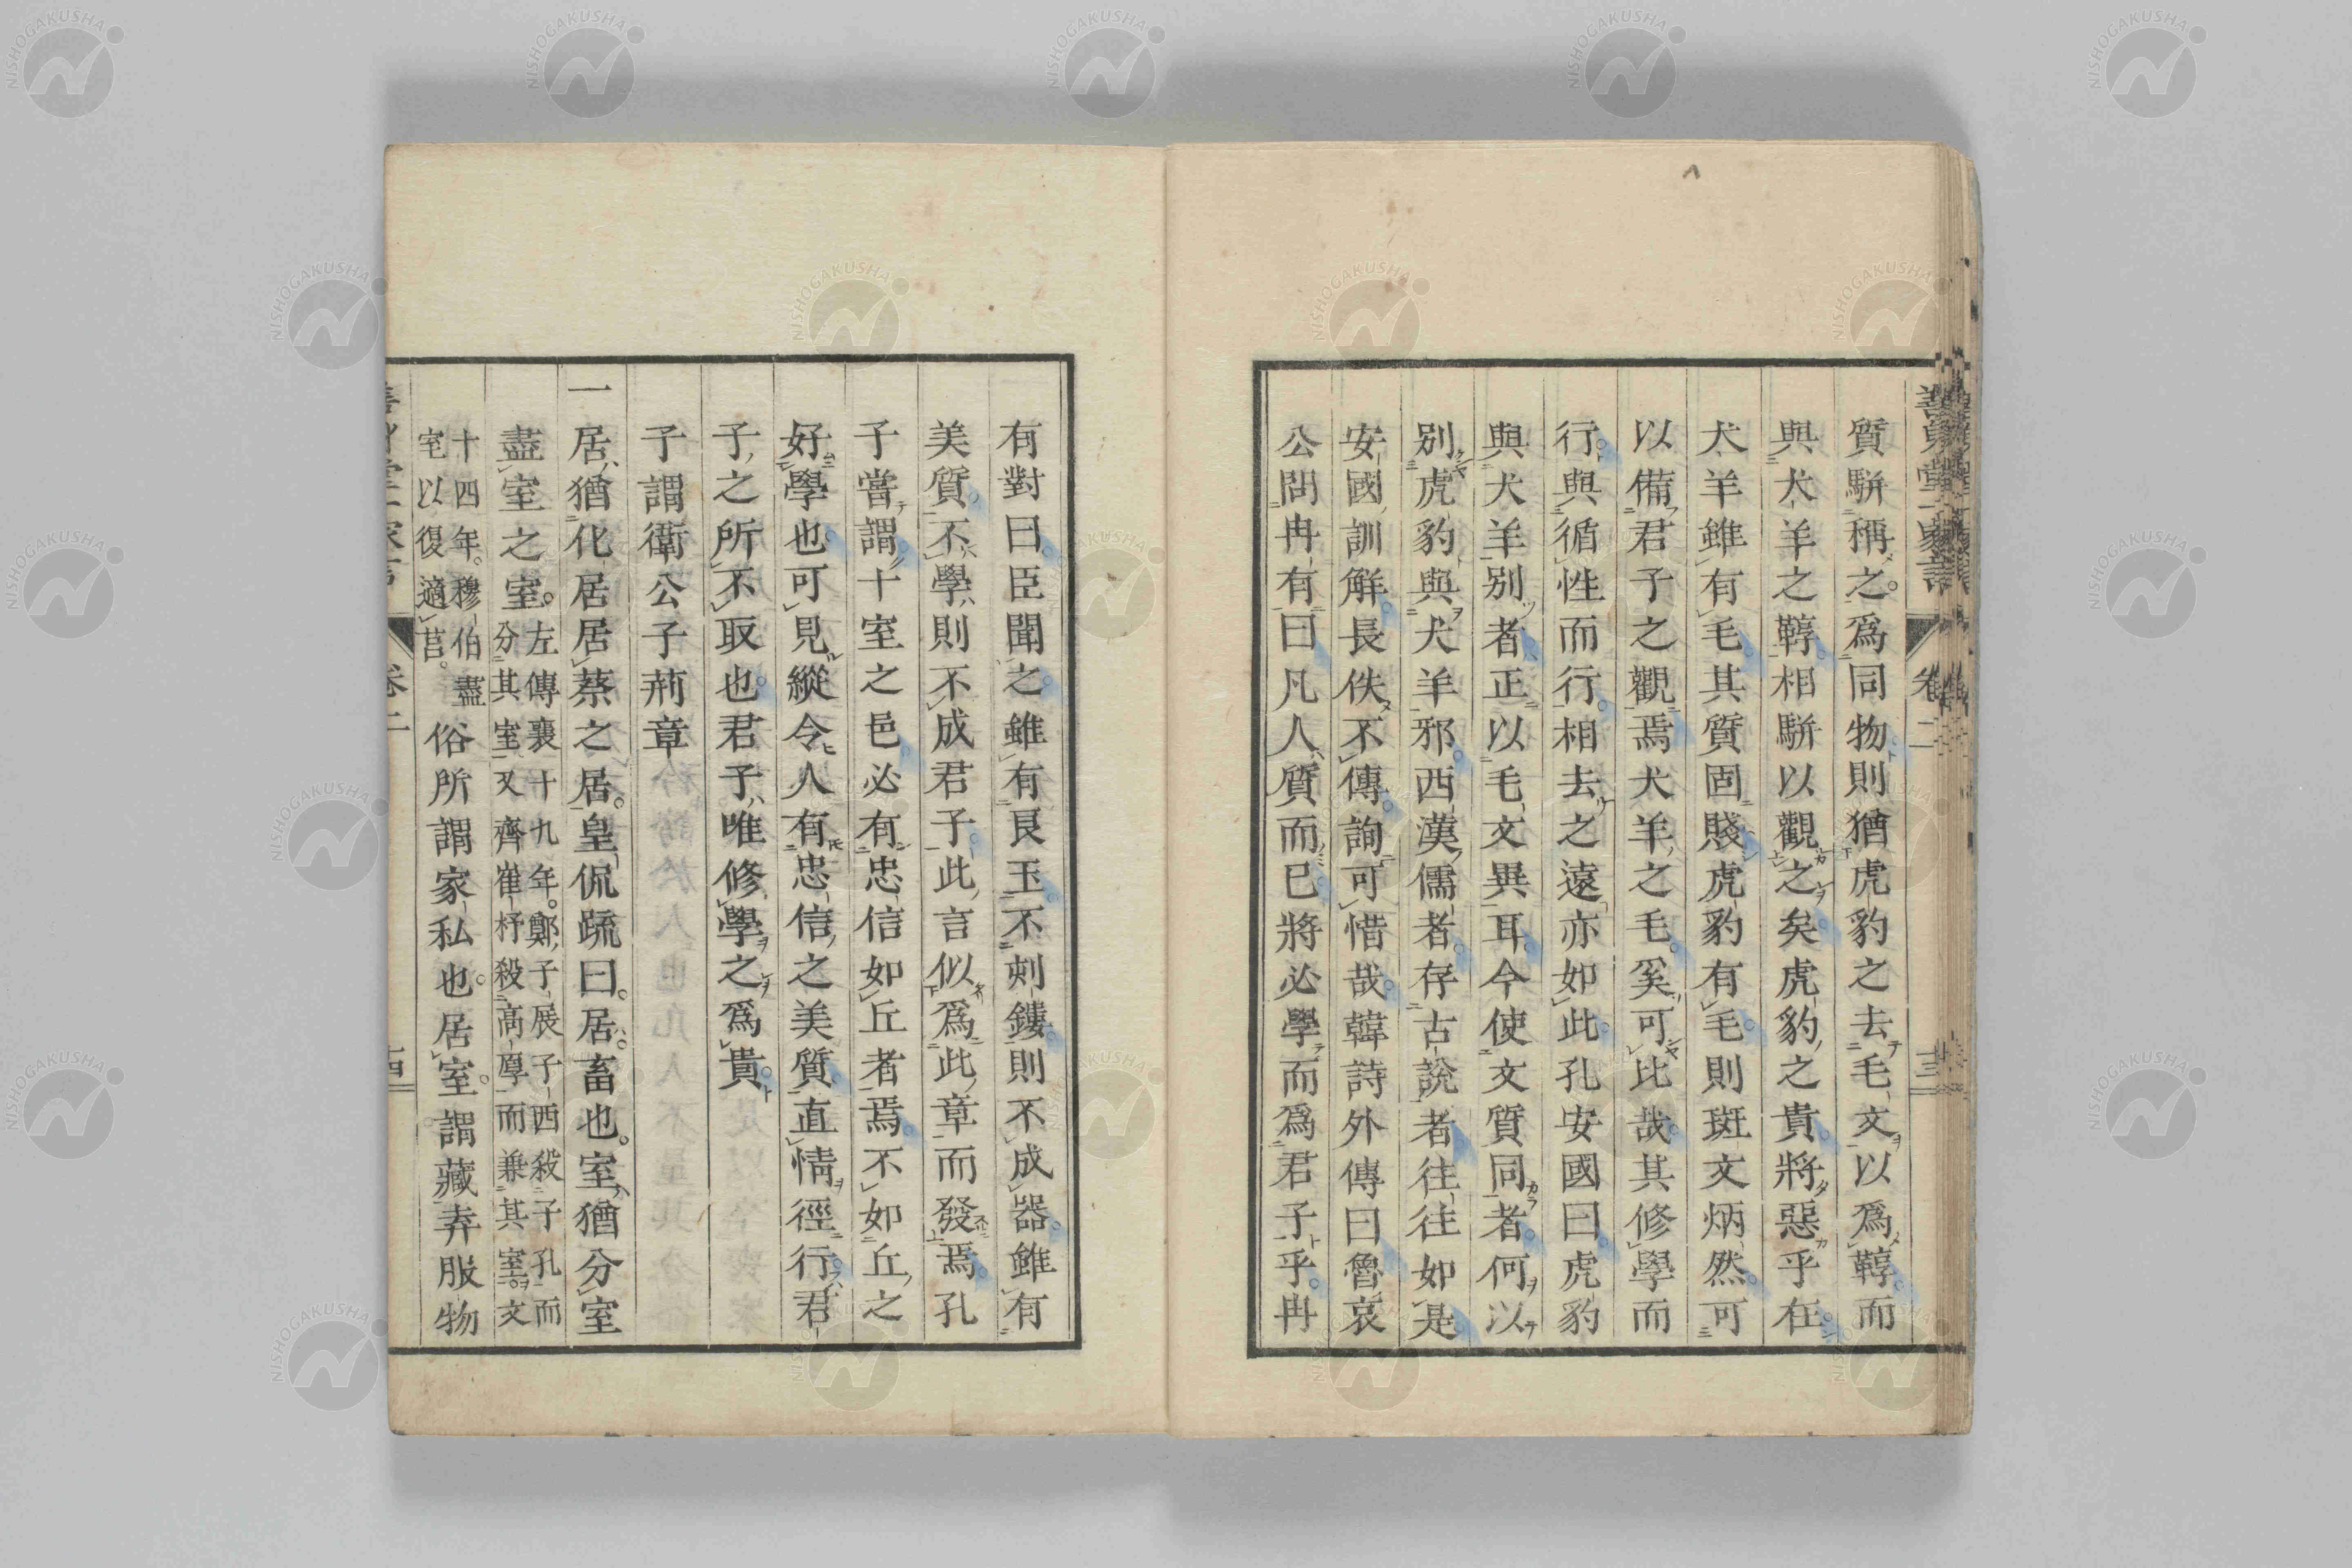 質駢稱之爲同物則猶虎豹之去毛文以爲鞹而
與犬羊之鞹相駢以觀之矣虎豹之貴將惡乎在
犬羊雖有毛其質固賤虎豹有毛則斑文炳然可
以備君子之觀焉犬羊之毛奚可比哉其修學而
行與循性而行相去之遠亦如此孔安國曰虎豹
與犬羊別者正以毛文異耳今使文質同者何以
別虎豹與犬羊邪西漢儒者存古說者往往如是
安國訓解長佚不傳詢可惜哉韓詩外傳曰魯哀
公問冉有曰凡人質而已將必學而爲君子乎冉
卷二
有對曰臣聞之雖有良玉不刻鏤則不成器雖有
美質不學則不成君子此言似爲此章而發焉孔
子嘗謂十室之邑必有忠信如丘者焉不如丘之
好學也可見縱令人有忠信之美質直情徑行君
子之所不取也君子唯修學之爲貴
子謂衛公子荊章
一居猶化居居蔡之居皇侃疏曰居畜也室猶分室
盡室之室左傳襄十九年鄭子展子西殺子孔而
分其室又齊崔杼殺高厚而兼其室文
十四年穆伯盡
室以復適莒
俗所謂家私也居室謂藏弆服物
NISHOGAKUSHA